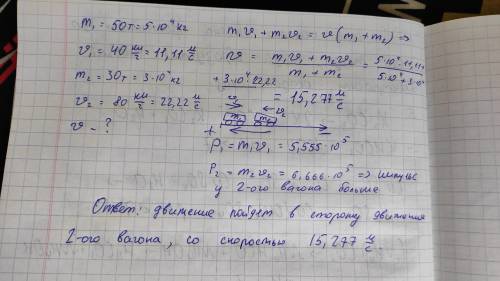 m₁ = 50т = 5·10⁴ кг
v₁ = 40 км/ч = 11,11 м/с
m₂ = 30т = 3·10⁴ кг
v₂ = 80 км/ч = 22,22 м/с
v - ?
m₁v₁ + m₂v₂ = v(m₁ + m₂) ⇒
v = (m₁v₁ + m₂v₂)/(m₁ + m₂) = 5·10⁴·11,11/(5·10⁴+3·10⁴)
+ 3·10⁴·22,22
= 15,277 м/с
v₁ → ← v₂
m₁ m₂
+
P₁ = m₁v₁ = 5,555·10⁵
P₂ = m₂v₂ = 6,666·10⁵ ⇒ импульс
у 2-ого вагона больше
Ответ: движение пойдет в сторону движения
2-ого вагона, со скоростью 15,277 м/с.